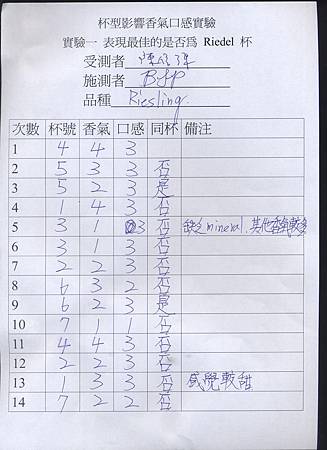 杯型影響香氣口感實驗
實驗一 表現最佳的是否為 Riedel 杯
受測者
施測者 BSP
品種 Riesling
次數 杯號 香氣 口感 同杯 備注
1 4 4 3
2 5 3 3 否
3 5 2 3 是
4 1 4 3 否
5 3 1 3 否 缺乏mineral,其他香氣較多
6 3 1 3 否
7 2 2 3 否
8 6 3 2 否
9 6 2 3 是
10 7 1 1 否
11 4 4 3 否
12 2 2 3 否
13 1 3 3 否 感覺較甜
14 7 2 2 否